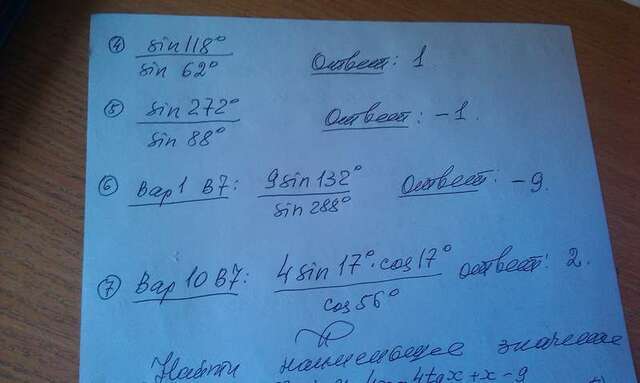 ④ sin 118° / sin 62° Ответ: 1.
⑤ sin 272° / sin 88° Ответ: -1.
⑥ Вар 1 В7: 9 sin 132° / sin 288° Ответ: -9.
⑦ Вар 10 В7: 4 sin 17° · cos 17° / cos 56° ответ: 2.
Найти наименьшее значение
4tgx + x - 9